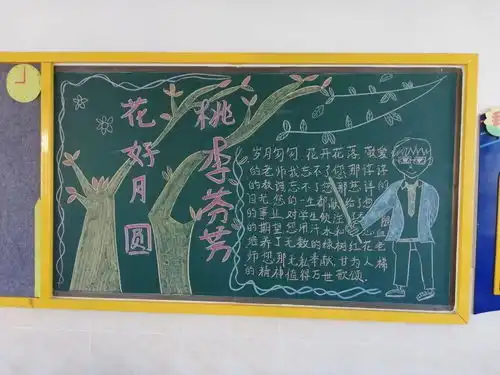 桃李芬芳
花好月圆
岁月匆匆，花开花落，敬爱
的老师我忘不了您那谆谆
的教诲忘不了您那慈祥的
目光，您的一生都献给了您
的事业，对学生倾注 限
的期望您用汗水和 血
培养了无数的绿树红花老
师您那无私奉献，甘为人梯
的精神值得万世歌颂.